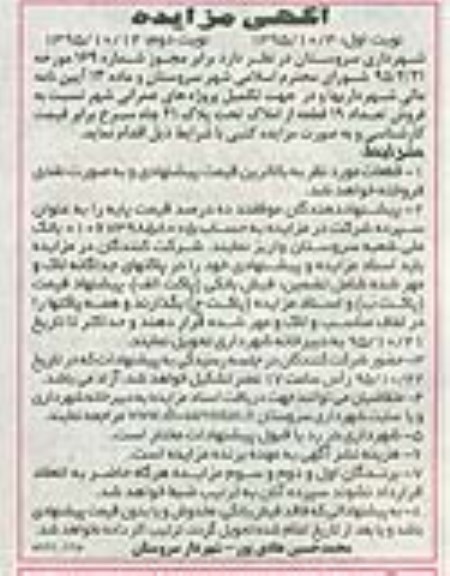 آگهی مزایده
نوبت اول: ۱۳۹۵/۱۰/۳ نوبت دوم: ۱۳۹۵/۱۰/۱۲
شهرداری سروستان در نظر دارد برابر مجوز شماره ۱۶۹ مورخه
شورای محترم اسلامی شهر سروستان و ماده ۱۳ آیین نامه
مالی شهرداریها و در جهت تکمیل پروژه های عمرانی شهر نسبت به
فروش تعداد ۱۹ قطعه از املاک تحت پلاک ۲۱ چاه سرخ برابر قیمت
کارشناسی و به صورت مزایده کتبی با شرایط ذیل اقدام نماید.
شرایط:
۱- قطعات مورد نظر به بالاترین قیمت پیشنهادی و به صورت نقدی
فروخته خواهد شد.
۲- پیشنهاددهندگان موظفند ده درصد قیمت پایه را به عنوان
سپرده شرکت در مزایده به حساب بانک
ملی شعبه سروستان واریز نمایند. شرکت کنندگان در مزایده
باید اسناد مزایده و پیشنهادی خود را در پاکتهای جداگانه لاک و
مهر شده شامل تضمین، فیش بانکی (پاکت الف)، پیشنهاد قیمت
(پاکت ب) و اسناد مزایده (پاکت ج) بگذارند و همه پاکتها را
در لفاف مناسب و لاک و مهر شده قرار دهند و حداکثر تا تاریخ
۹۵/۱۰/۲۱ به دبیرخانه شهرداری تحویل نمایند.
۳- حضور شرکت کنندگان در جلسه رسیدگی به پیشنهادات که در تاریخ
۹۵/۱۰/۲۲ رأس ساعت ۱۷ عصر تشکیل خواهد شد، آزاد می باشد.
۴- متقاضیان می توانند جهت دریافت اسناد مزایده به دبیرخانه شهرداری
و یا سایت شهرداری سروستان مراجعه نمایند.
۵- شهرداری در رد یا قبول پیشنهادات مختار است.
۶- هزینه نشر آگهی به عهده برنده مزایده است.
۷- برندگان اول و دوم و سوم مزایده هرگاه حاضر به انعقاد
قرارداد نشوند سپرده آنان به ترتیب ضبط خواهد شد.
۸- به پیشنهاداتی که فاقد فیش بانکی، مخدوش و یا بدون قیمت پیشنهادی
باشد و یا بعد از تاریخ اعلام شده تحویل گردد، ترتیب اثر داده نخواهد شد.
محمدحسین هادی پور - شهردار سروستان